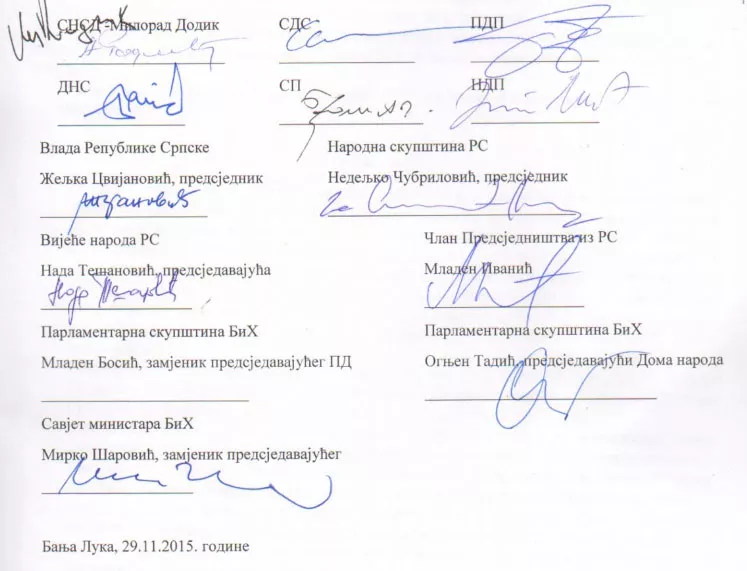 СНСД -Милорад Додик
СДС
ПДП
ДНС
СП
НДП
Влада Републике Српске
Народна скупштина РС
Жељка Цвијановић, предсједник
Недељко Чубриловић, предсједник
Вијеће народа РС
Члан Предсједништва из РС
Нада Тешановић, предсједавајућа
Младен Иванић
Парламентарна скупштина БиХ
Парламентарна скупштина БиХ
Младен Босић, замјеник предсједавајућег ПД
Огњен Тадић, предсједавајући Дома народа
Савјет министара БиХ
Мирко Шаровић, замјеник предсједавајућег
Бања Лука, 29.11.2015. године